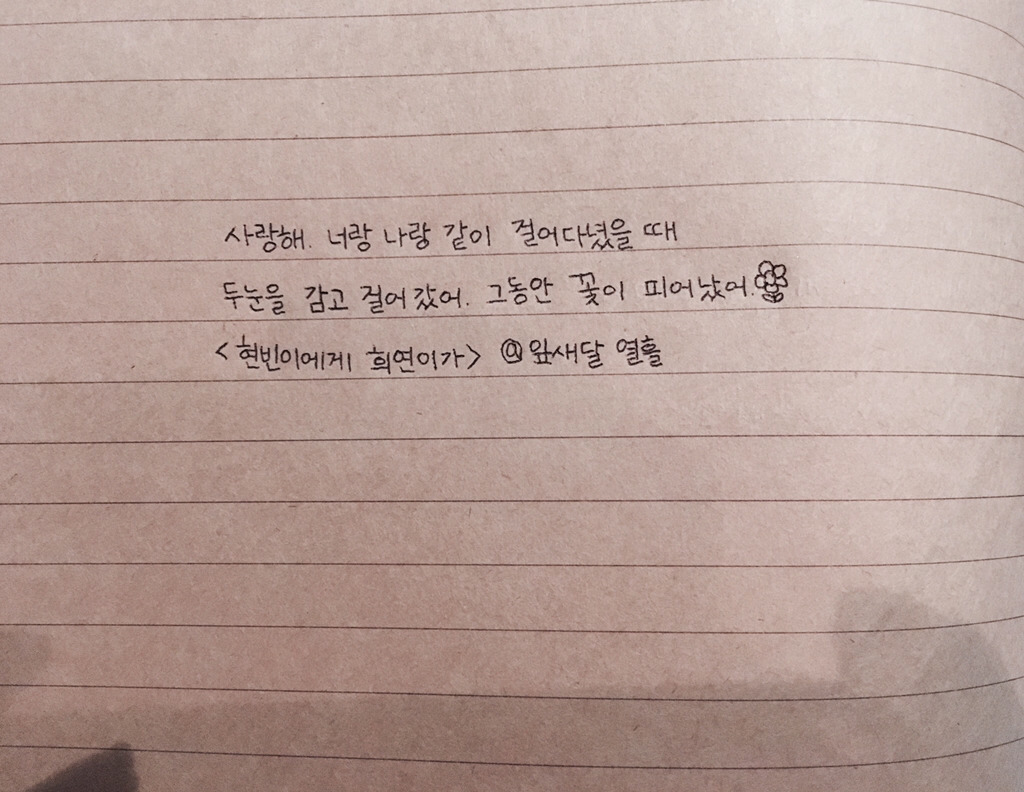 사랑해. 너랑 나랑 같이 걸어다녔을 때
두눈을 감고 걸어갔어. 그동안 꽃이 피어났어.
<현빈이에게 희연이가> @잎새달 열흘